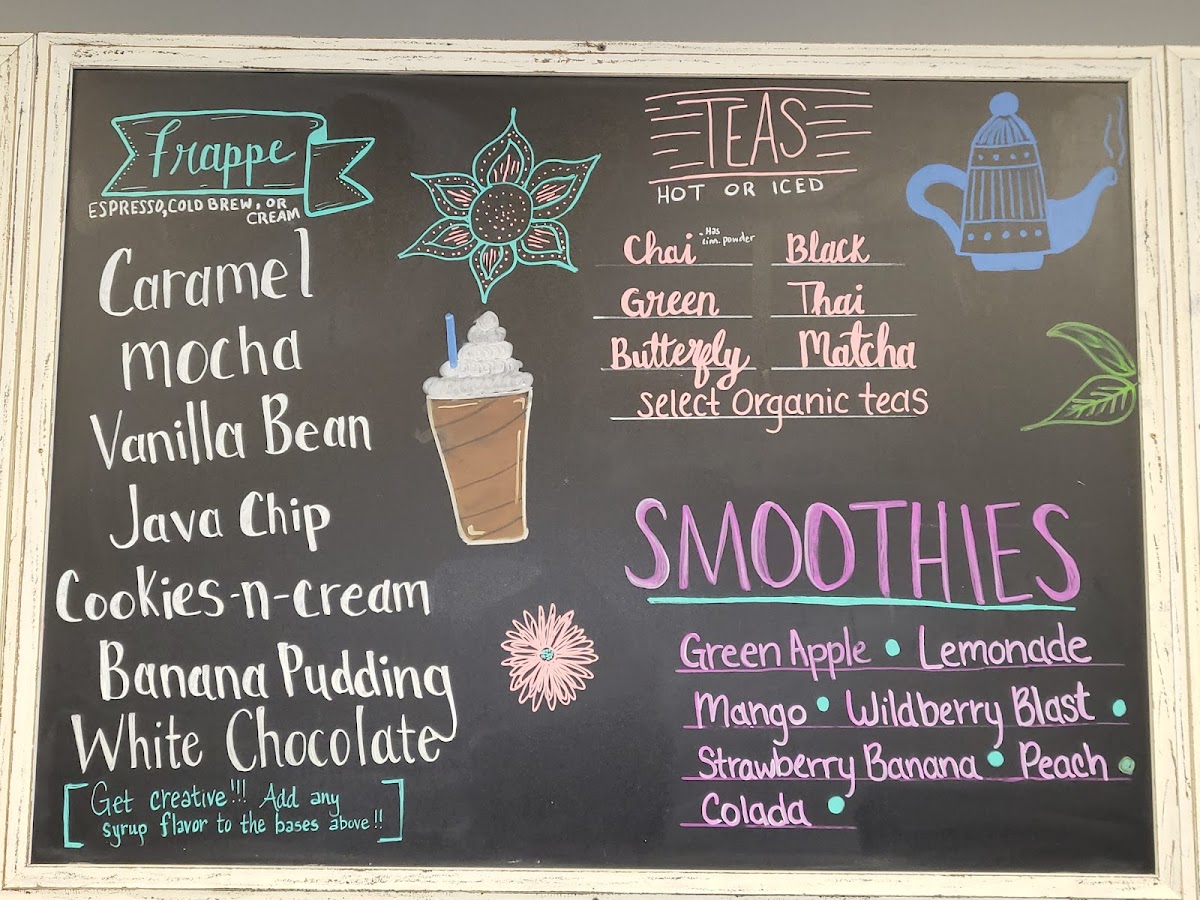 Frappe
ESPRESSO, COLD BREW, OR
CREAM
Caramel
mocha
Vanilla Bean
Java Chip
Cookies-n-cream
Banana Pudding
White Chocolate
Get creative!!! Add any
syrup flavor to the bases above!!
TEAS
HOT OR ICED
Chai • Has
cinn. powder
Black
Green
Thai
Butterfly
Matcha
select Organic teas
SMOOTHIES
Green Apple • Lemonade
Mango • Wildberry Blast •
Strawberry Banana • Peach •
Colada •